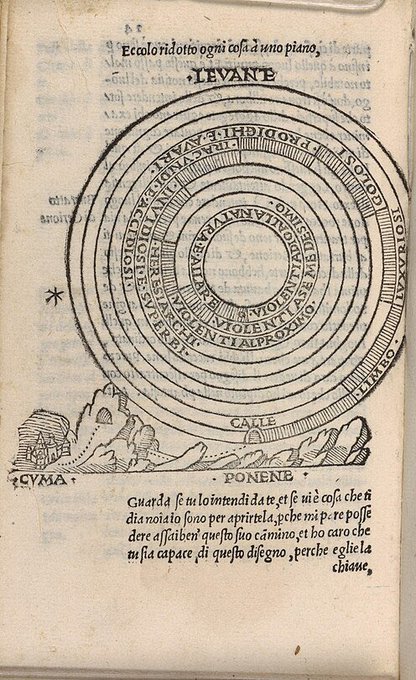 Ecco lo ridotto ogni cosa à uno piano,
·LEVANTE·
PRODIGHI·E·AVARI
GOLOSI
LIMBO·
·IRACVNDI·E ACCIDIOSI·
·INVIDIOSI·E SVPERBI·
HERESIARCHI·
VIOLENTIA·AL PROXIMO·
VIOLENTIA·A SE MEDESIMO·
CALLE
·CVMA·
·PONENE·
Guarda se tu lo intendi da te, et se vi è cosa che ti
dia noia io sono per aprirtela, pche mi pare posse
dere assai ben questo suo cãmino, et ho caro che
tu sia capace di questo disegno, perche egli e la
chiave,